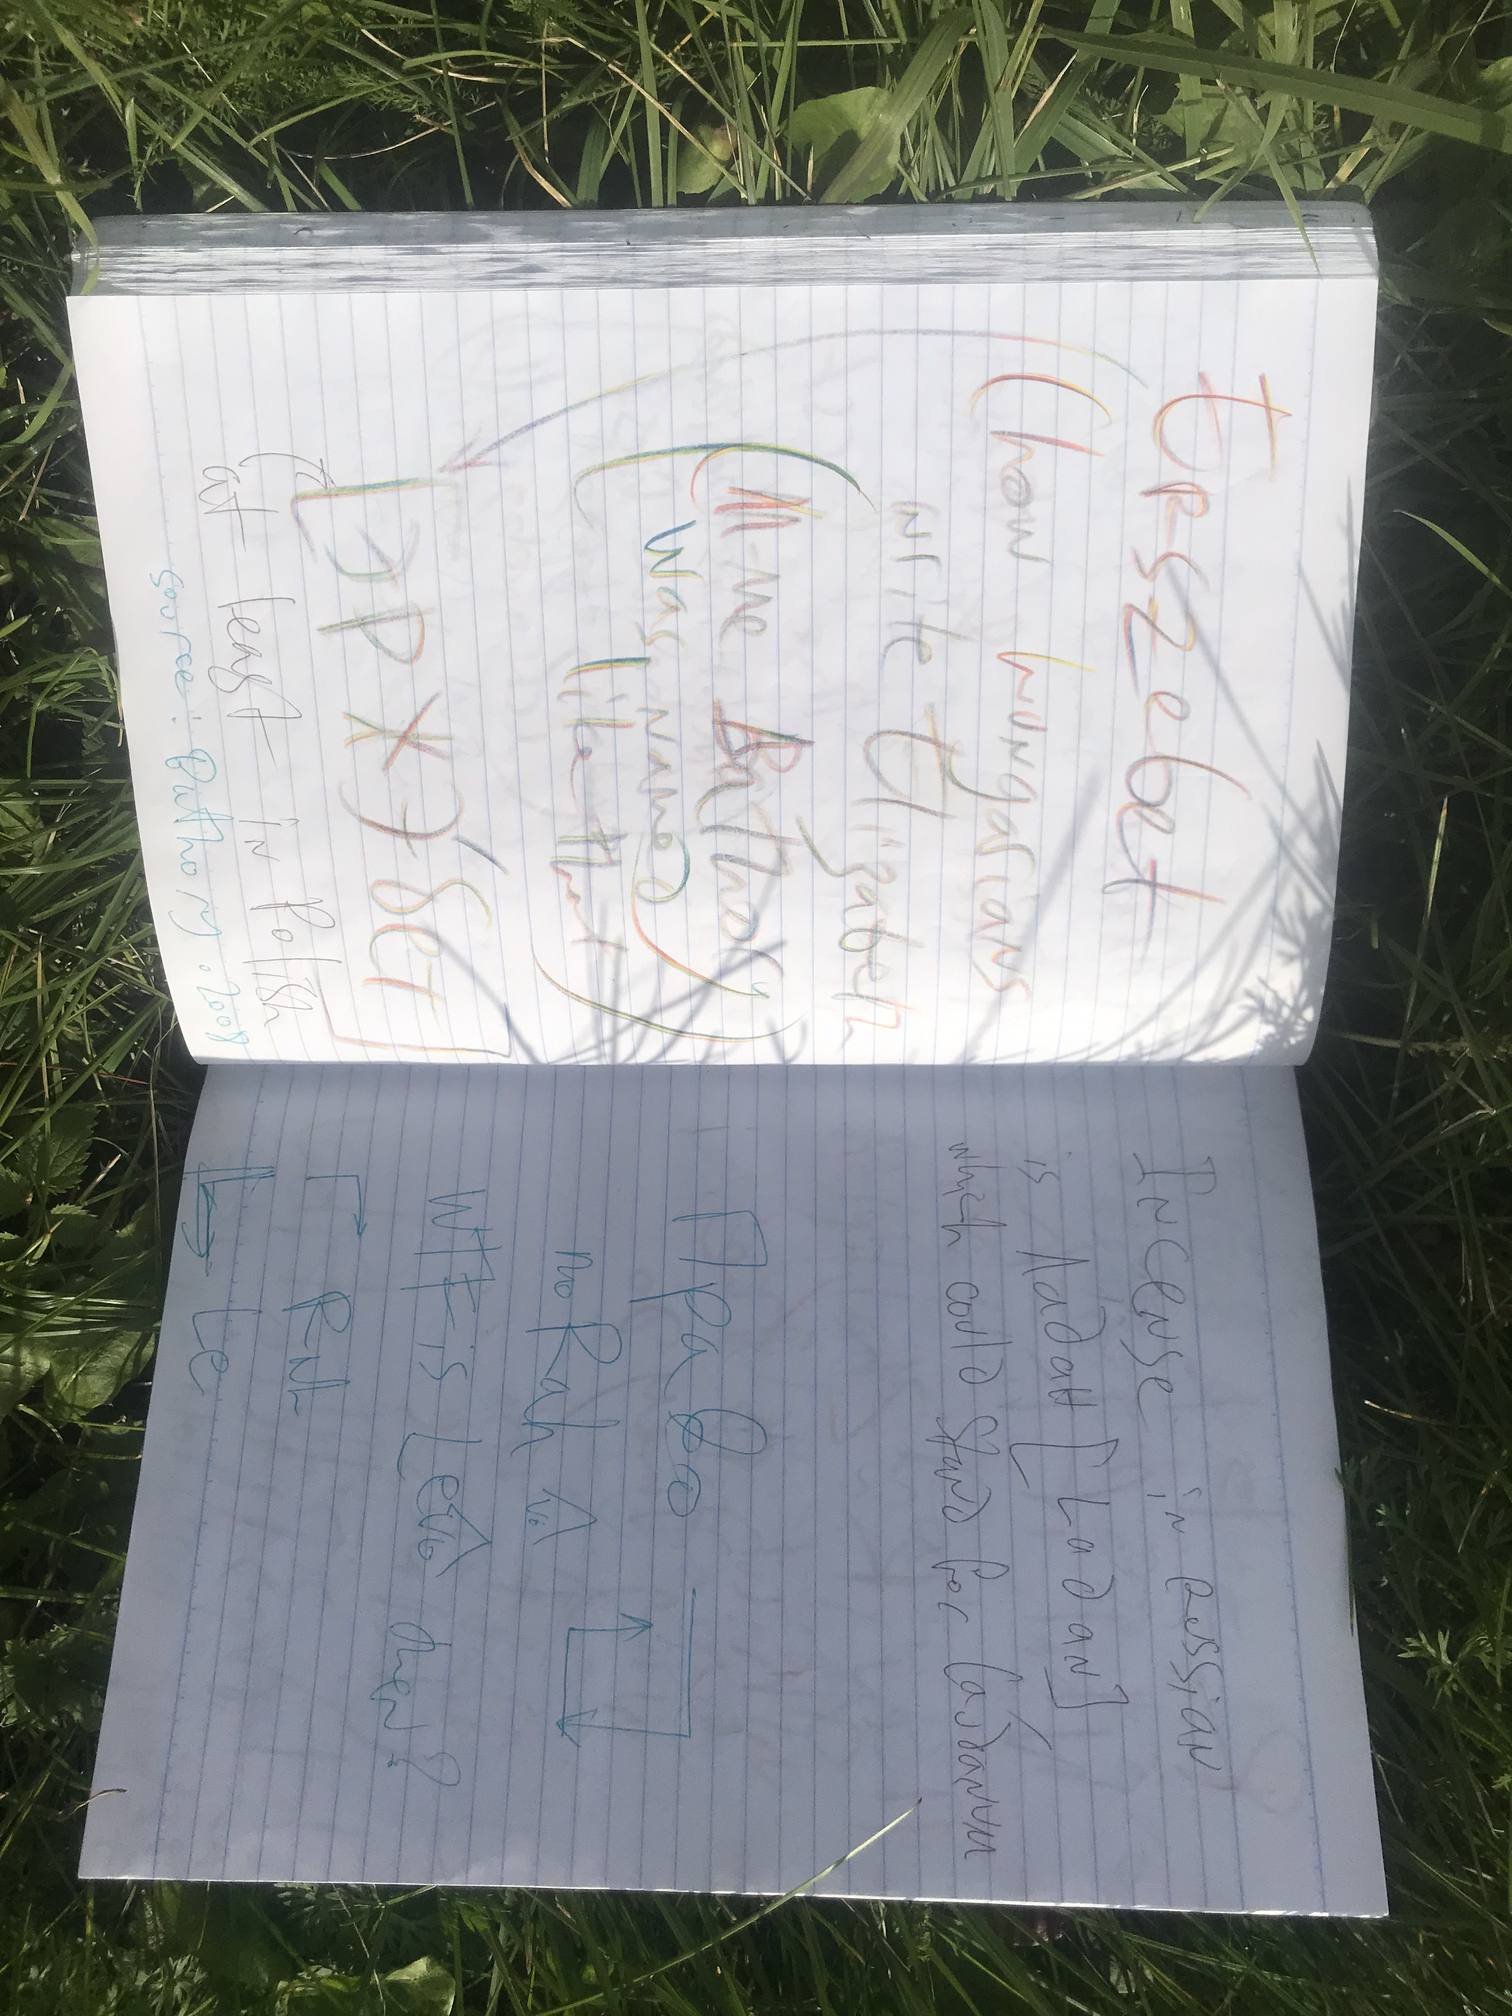 Erszebet
(how hungarians
write Elizabeth
(the Bathory
was named)
like that)
[ЭРЖЭ́БЕТ]
(at least in Polish
source: Bathory, 2008
Incense in Russian
is ладан [Ladan]
which could stand for Laudanum
Право
noRah
WTF is Leviy then?
RNL
Le